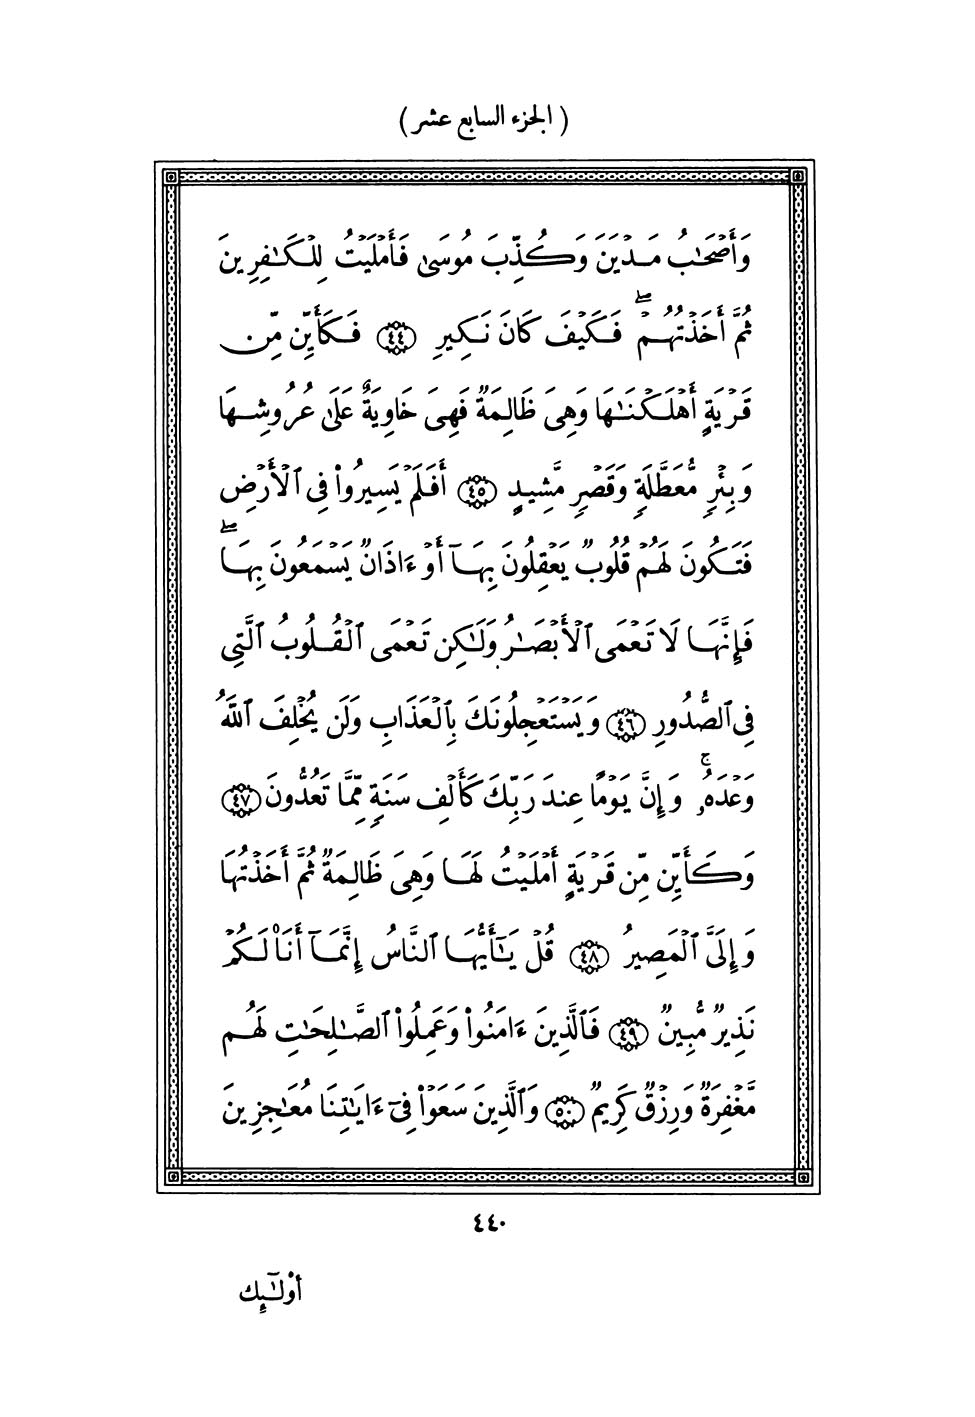 ( الجزء السابع عشر )
وَأَصْحَٰبُ مَدْيَنَ وَكُذِّبَ مُوسَىٰ فَأَمْلَيْتُ لِلْكَٰفِرِينَ
ثُمَّ أَخَذْتُهُمْ ۖ فَكَيْفَ كَانَ نَكِيرِ ٤٤ فَكَأَيِّن مِّن
قَرْيَةٍ أَهْلَكْنَٰهَا وَهِىَ ظَالِمَةٌ فَهِىَ خَاوِيَةٌ عَلَىٰ عُرُوشِهَا
وَبِئْرٍ مُّعَطَّلَةٍ وَقَصْرٍ مَّشِيدٍ ٤٥ أَفَلَمْ يَسِيرُوا۟ فِى ٱلْأَرْضِ
فَتَكُونَ لَهُمْ قُلُوبٌ يَعْقِلُونَ بِهَآ أَوْ ءَاذَانٌ يَسْمَعُونَ بِهَا ۖ
فَإِنَّهَا لَا تَعْمَى ٱلْأَبْصَٰرُ وَلَٰكِن تَعْمَى ٱلْقُلُوبُ ٱلَّتِى
فِى ٱلصُّدُورِ ٤٦ وَيَسْتَعْجِلُونَكَ بِٱلْعَذَابِ وَلَن يُخْلِفَ ٱللَّهُ
وَعْدَهُۥ ۚ وَإِنَّ يَوْمًا عِندَ رَبِّكَ كَأَلْفِ سَنَةٍ مِّمَّا تَعُدُّونَ ٤٧
وَكَأَيِّن مِّن قَرْيَةٍ أَمْلَيْتُ لَهَا وَهِىَ ظَالِمَةٌ ثُمَّ أَخَذْتُهَا
وَإِلَىَّ ٱلْمَصِيرُ ٤٨ قُلْ يَٰٓأَيُّهَا ٱلنَّاسُ إِنَّمَآ أَنَا۠ لَكُمْ
نَذِيرٌ مُّبِينٌ ٤٩ فَٱلَّذِينَ ءَامَنُوا۟ وَعَمِلُوا۟ ٱلصَّٰلِحَٰتِ لَهُم
مَّغْفِرَةٌ وَرِزْقٌ كَرِيمٌ ٥٠ وَٱلَّذِينَ سَعَوْا۟ فِىٓ ءَايَٰتِنَا مُعَٰجِزِينَ
٤٤٠
أُو۟لَٰٓئِك